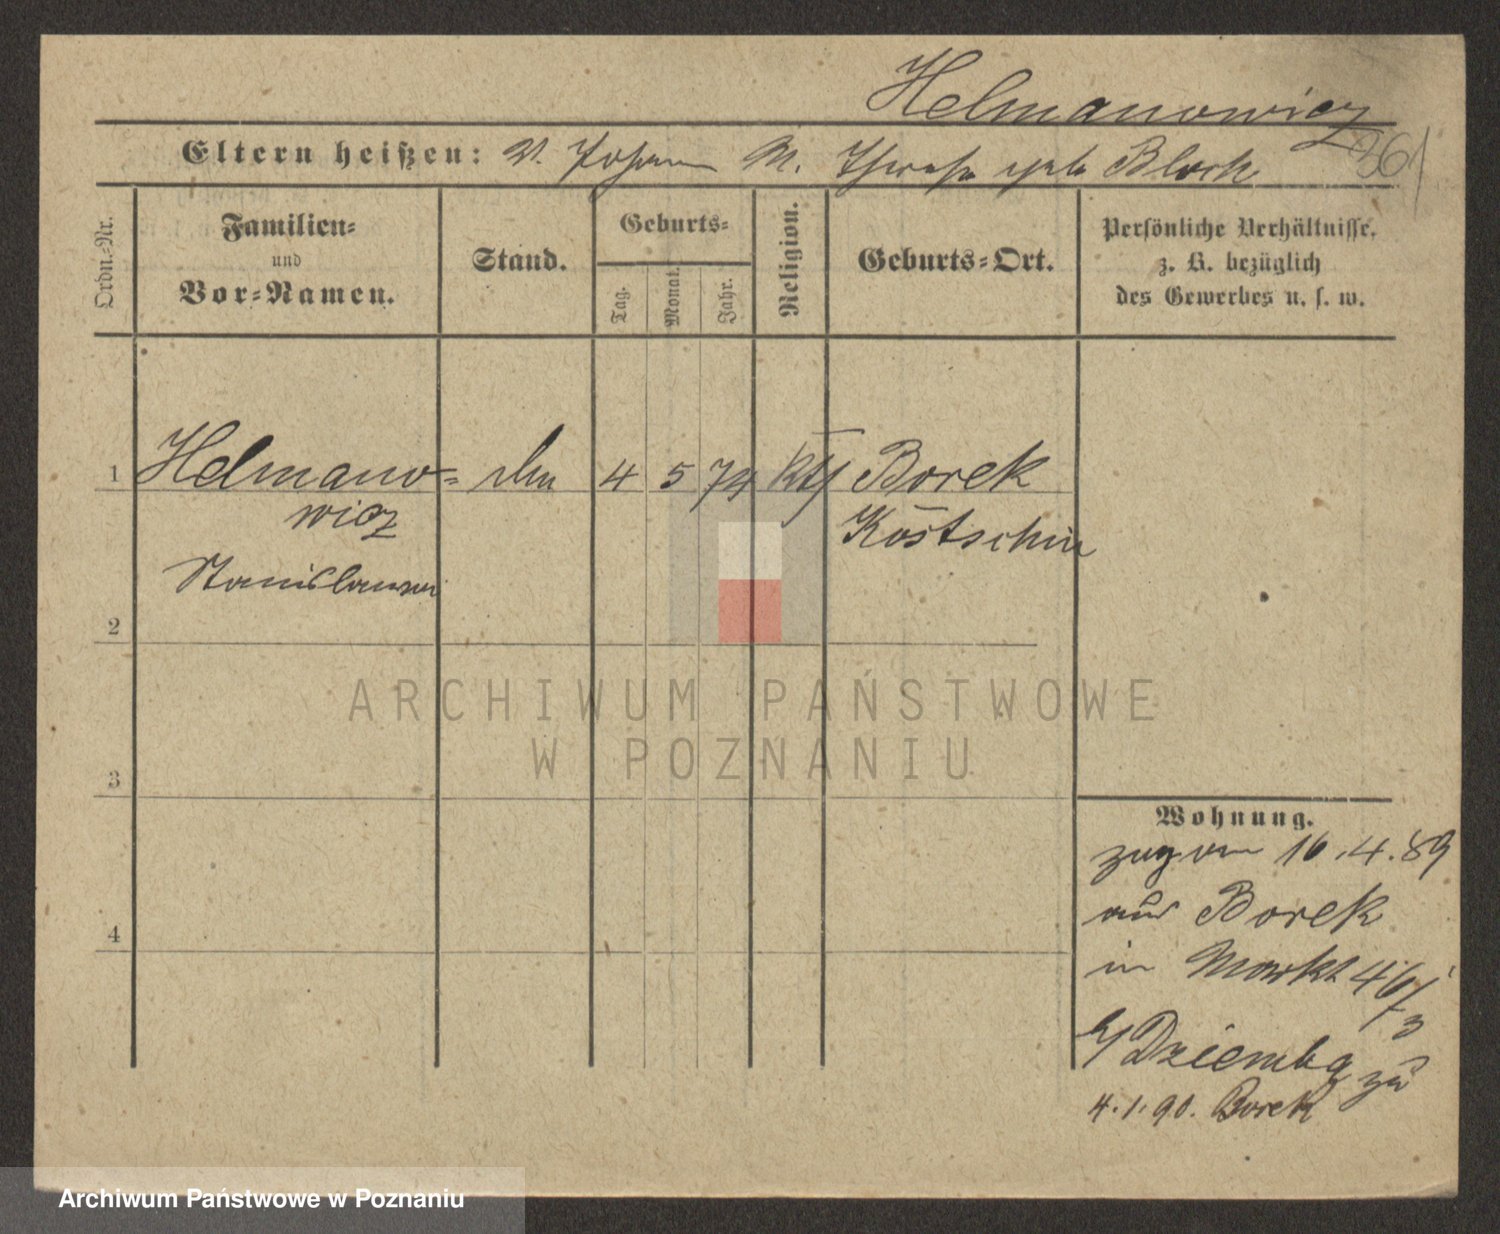 Helmanowicz
Eltern heißen: V. Johann M. Therese geb. Block
361
Ordn.-Nr.
Familien-
und
Vor-Namen.
Stand.
Geburts-
Tag.
Monat.
Jahr.
Religion.
Geburts-Ort.
Persönliche Verhältnisse,
z. B. bezüglich
des Gewerbes u. s. w.
1 Helmano- 4 5 74 kth Borek
wicz Kostschin
Stanislaus
2
3
4
Wohnung.
zugvon 16.4.89
aus Borek
in Markt 46/3
b/ Dziemba zu
4.1.90. Borek
ARCHIWUM PAŃSTWOWE
W POZNANIU
Archiwum Państwowe w Poznaniu